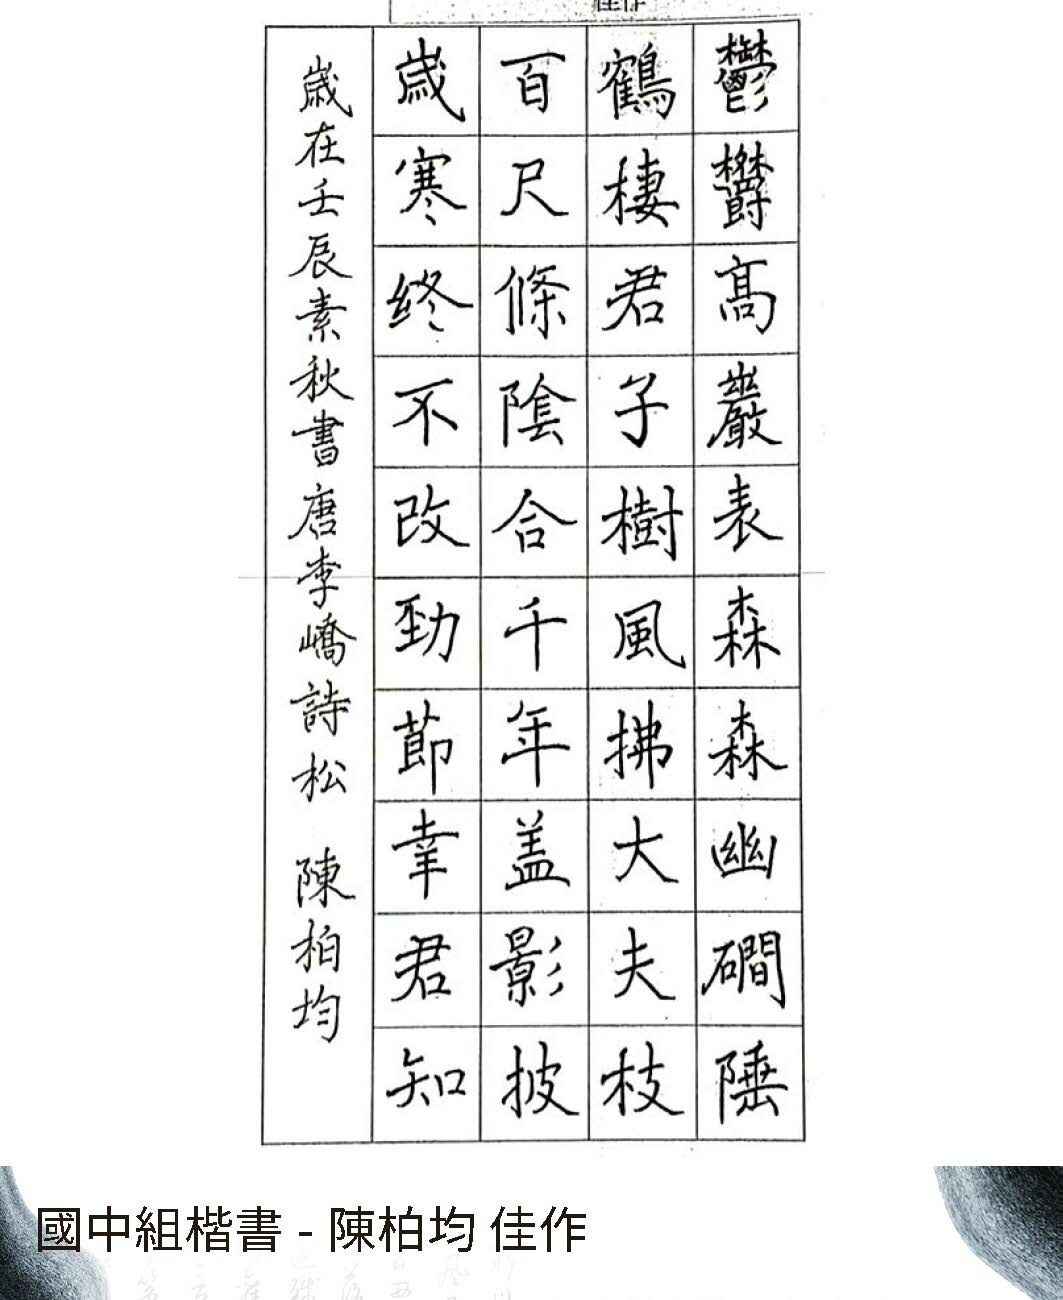 佳作
鬱鬱高巖表森森幽磵陲
鶴棲君子樹風拂大夫枝
百尺條陰合千年盖影披
歲寒終不改勁節幸君知
歲在壬辰素秋書唐李嶠詩松 陳柏均
國中組楷書 - 陳柏均 佳作